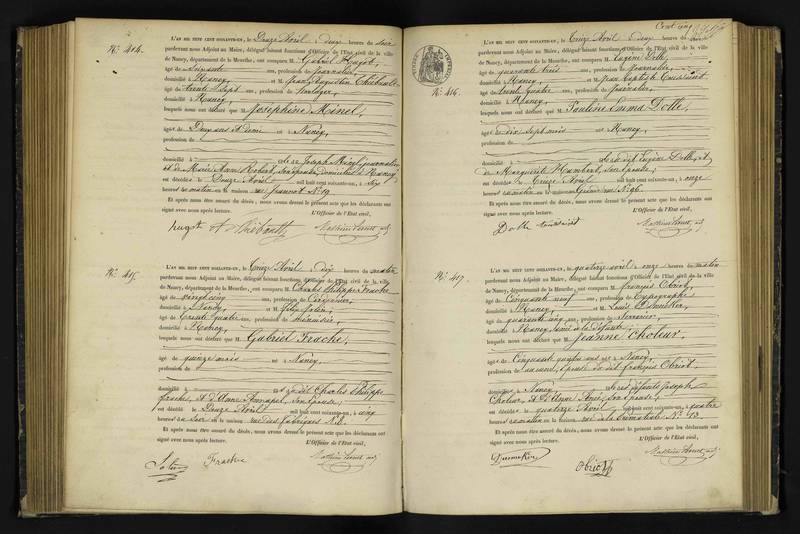 N° 414.
L'AN MIL HUIT CENT SOIXANTE-UN, le Douze Avril à deux heures du soir
pardevant nous Adjoint au Maire, délégué faisant fonctions d'Officier de l'Etat civil de la ville
de Nancy, département de la Meurthe, ont comparu M. Gabriel Hugot,
âgé de soixante ans, profession de journalier,
domicilié à Nancy, et M. Jean Augustin Thiébault
âgé de trente sept ans, profession de
domicilié à Nancy,
lesquels nous ont déclaré que M. Joséphine Minel,
âgé e de Deux ans et demi né e à Nancy,
profession de
domicilié à de Joseph Minel, journalier
et de Marie Anne Robert, son épouse, domiciliés à Nancy
est décédé e le Douze Avril mil huit cent soixante-un, à
heures du matin en la maison rue Jeannot N° 19
Et après nous être assuré du décès, nous avons dressé le présent acte que les déclarants ont
signé avec nous après lecture. L'Officier de l'Etat civil,
hugot Thiébault
N° 415.
L'AN MIL HUIT CENT SOIXANTE-UN, le Treize Avril à dix heures du matin
pardevant nous Adjoint au Maire, délégué faisant fonctions d'Officier de l'Etat civil de la ville
de Nancy, département de la Meurthe, ont comparu M. Charles Philippe Frache
âgé de vingt cinq ans, profession de Cordonnier,
domicilié à Nancy, et M.
âgé de trente quatre ans, profession de menuisier,
domicilié à Nancy,
lesquels nous ont déclaré que M. Gabriel Frache,
âgé de quinze mois né à Nancy,
profession de
domicilié à dit Charles Philippe
Frache, et d'Anne son épouse,
est décédé le Douze Avril mil huit cent soixante-un, à cinq
heures du soir en la maison rue des fabriques N° 6.
Et après nous être assuré du décès, nous avons dressé le présent acte que les déclarants ont
signé avec nous après lecture. L'Officier de l'Etat civil,
Frache
Cent cinq
N° 416.
L'AN MIL HUIT CENT SOIXANTE-UN, le Treize Avril à deux heures du
pardevant nous Adjoint au Maire, délégué faisant fonctions d'Officier de l'Etat civil de la ville
de Nancy, département de la Meurthe, ont comparu M. Eugène Dolle,
âgé de quarante trois ans, profession de journalier
domicilié à Nancy, et M. Jean Baptiste
âgé de trente quatre ans, profession de journalier,
domicilié à Nancy,
lesquels nous ont déclaré que M. Pauline Emma Dolle,
âgé e de dix sept mois né e à Nancy,
profession de
domicilié à dit Eugène Dolle, et
de Marguerite Humbert, son épouse,
est décédé e le Treize Avril mil huit cent soixante-un, à onze
heures du matin en la maison N° 96.
Et après nous être assuré du décès, nous avons dressé le présent acte que les déclarants ont
signé avec nous après lecture. L'Officier de l'Etat civil,
Dolle
N° 417.
L'AN MIL HUIT CENT SOIXANTE-UN, le quatorze avril à onze heures du matin
pardevant nous Adjoint au Maire, délégué faisant fonctions d'Officier de l'Etat civil de la ville
de Nancy, département de la Meurthe, ont comparu M. françois Obriot,
âgé de Cinquante neuf ans, profession de Typographe
domicilié à Nancy, et M. Louis
âgé de quarante cinq ans, profession de Serrurier,
domicilié à Nancy,
lesquels nous ont déclaré que M. Jeanne Choleur,
âgé e de Cinquante quatre ans né e à Nancy,
profession de épouse du dit françois Obriot,
domiciliée à Nancy, Joseph
Choleur, et d'Anne son épouse,
est décédé e le quatorze Avril mil huit cent soixante-un, à quatre
heures du matin en la maison, rue de la Primatiale N° 13.
Et après nous être assuré du décès, nous avons dressé le présent acte que les déclarants ont
signé avec nous après lecture. L'Officier de l'Etat civil,
Obriot